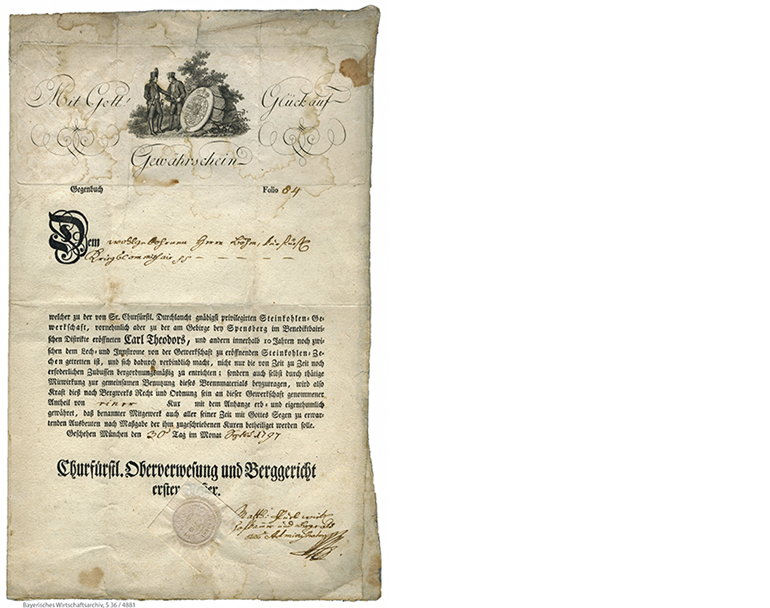 Mit Gott! Glück auf
Gewährschein
Gegenbuch Folio 84
Dem wohlgebohrnen Herrn
Kriegscommissair
welcher zu der von Sr. Churfürstl. Durchlaucht gnädigst privilegirten Steinkohlen-Ge-
werkschaft, vornehmlich aber zu der am Gebirge bey Spensberg im Benediktbairi-
schen Distrikte eröffneten Carl Theodors, und andern innerhalb 10 Jahren noch zwi-
schen dem Lech- und Innstrome von der Gewerkschaft zu eröffnenden Steinkohlen-Ze-
chen getretten ist, und sich dadurch verbindlich macht, nicht nur die von Zeit zu Zeit noch
erforderlichen Zubussen bergordnungsmäßig zu entrichten: sondern auch selbst durch thätige
Mitwirkung zur gemeinsamen Benutzung dieses Brennmaterials beyzutragen, wird also
Kraft dieß nach Bergwerks Recht und Ordnung sein an dieser Gewerkschaft genommener
Antheil von einer Kux mit dem Anhange erb- und eigenthumlich
gewähret, daß benannter Mitgewerk auch aller seiner Zeit mit Gottes Segen zu erwar-
tenden Ausbeuten nach Maßgabe der ihm zugeschriebenen Kuxen betheiliget werden solle.
Geschehen München den 30 Tag im Monat 1797
Churfürstl. Oberverwesung und Berggericht
erster
und
Bayerisches Wirtschaftsarchiv, S 36 / 4881